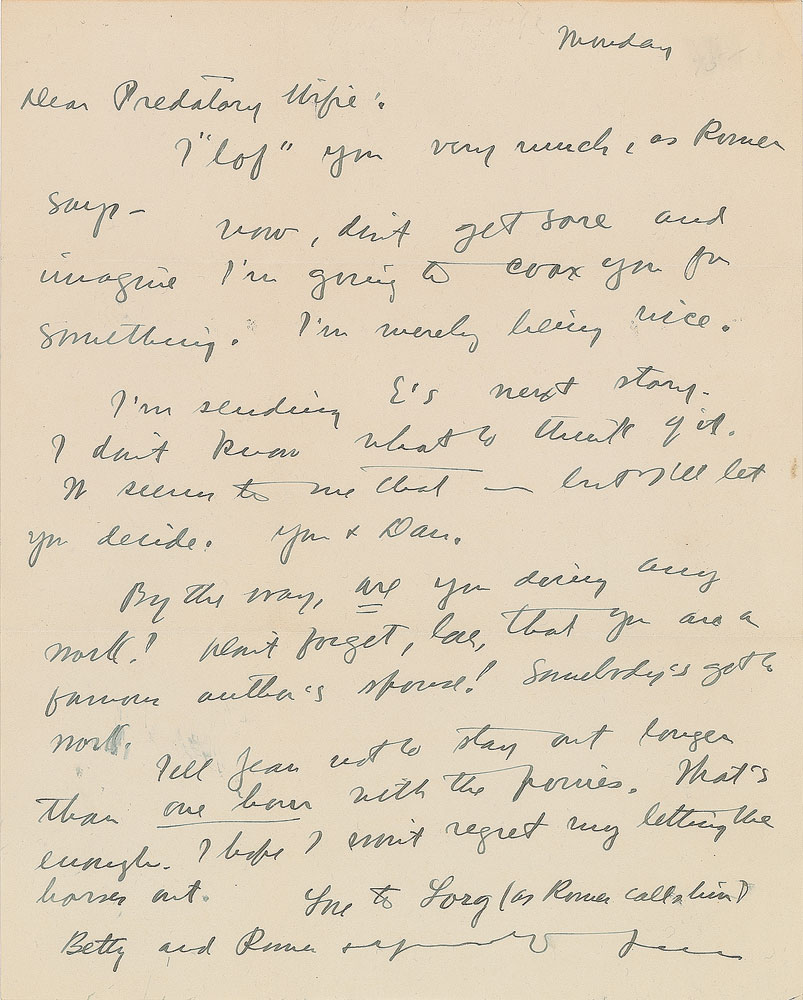 Monday
Dear Predatory Wifie:
I "lof" you very much, as Romer
says— now, don't get sore and
imagine I'm going to coax you for
something. I'm merely being nice.
I'm sending E's next story.
I don't know what to think of it.
It seems to me that — but I'll let
you decide. You & Dan.
By the way, are you doing any
work! Don't forget, love, that you are a
famous author's spouse! Somebody's got to
work.
Tell Jean not to stay out longer
than one hour with the ponies. That's
enough. I hope I won't regret my letting the
horses out. Love to Lorg (as Romer calls him)
Betty and Romer